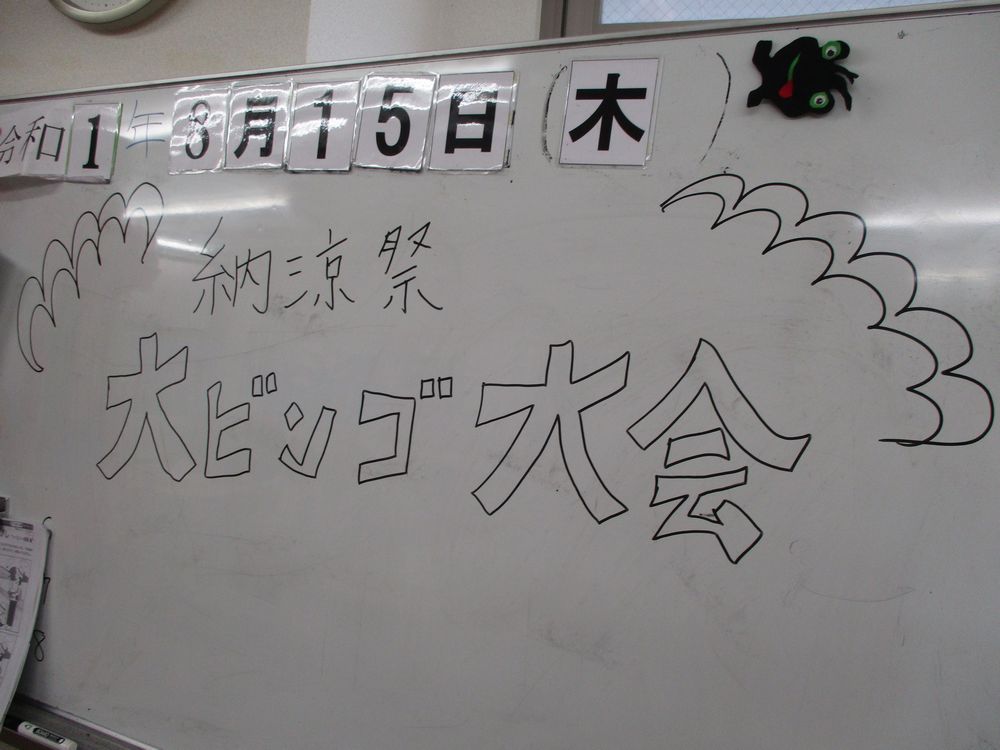 令和1年8月15日(木)
納涼祭
大ビンゴ大会
8